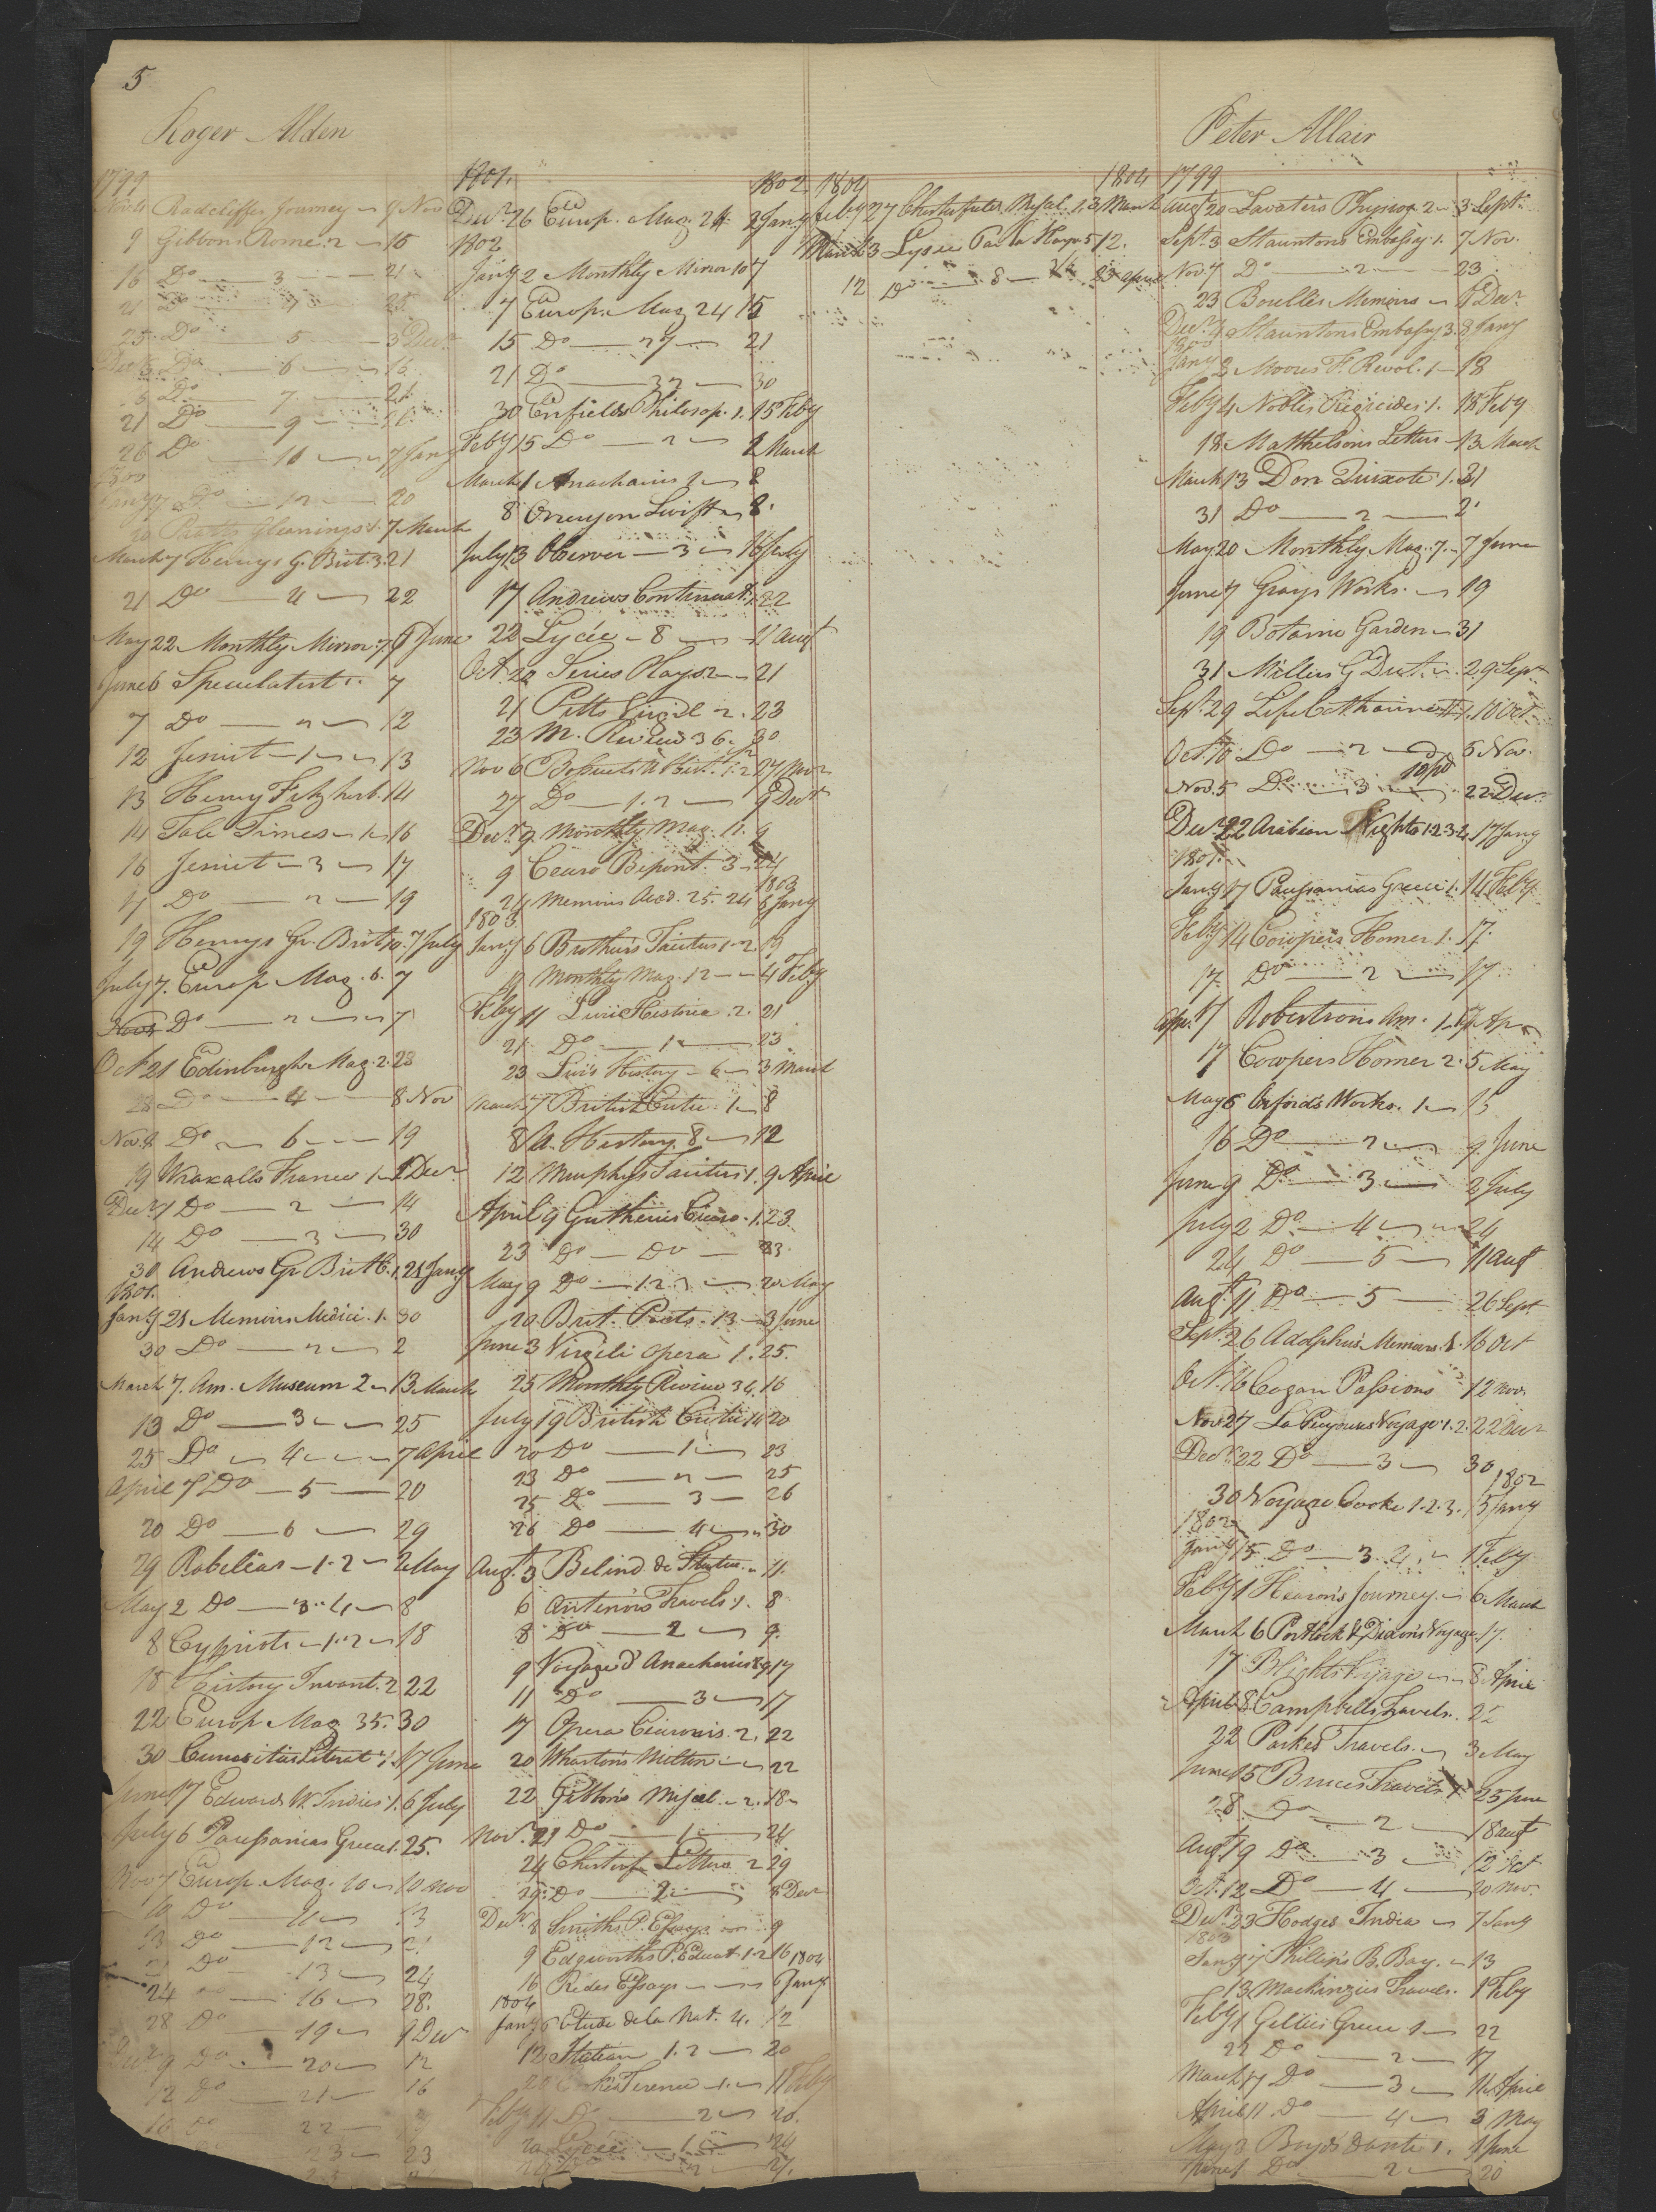 5
Roger Alden
1799
Nov 4 Radcliffes Journey 9 Nov
9 Gibbons Rome 2 16
16 Do 3 21
21 Do 4 25
25 Do 5 3 Decr
Do 6 16
Do 7 21
21 Do 9 26
26 Do 10 7 Jany
1800
Jany 7 Do 12 20
20 Pratts Gleanings 1. 7 March
March 7 Henrys G. Brit. 3. 21
21 Do 4 22
May 22 Monthly Mirror 7 6 June
June 6 Speculatist 1. 7
7 Do 2 12
12 Jesuit 1 13
13 Henry Fitzherb. 14
14 Tale Times 1 16
16 Jesuit 3 17
17 Do 2 19
19 Henrys Gr. Brit 10. 7 July
July 7. Europ Mag. 6. 7
Do 7
Oct 21 Edinburgh Mag. 2. 28
28 Do 4 8 Nov
Nov. 8 Do 6 19
19 Wraxalls France 1 1 Decr
Decr 1 Do 2 14
14 Do 3 30
30 Andrews Gr Brit 1. 21 Jany
1801.
Jany 21 Memoirs Medici. 1. 30
30 Do 2 2
March 7. Am. Museum 2 13 March
13 Do 3 25
25 Do 4 7 April
April 7 Do 5 20
20 Do 6 29
29 Rabelias 1.2 2 May
May 2 Do 3.4 8
8 Cypriots 1.2 18
18 History Invent. 2 22
22 Europ Mag 35. 30
30 Curiosities Literat 1. 17 June
June 17 Edwards W. Indies 1. 6 July
July 6 Pausanias Greece 1. 25.
Nov 7 Europ. Mag. 10 10 Nov
10 Do 11 13
13 Do 12 21
21 Do 13 24
24 Do 16 28.
28 Do 19 9 Decr
Decr 9 Do 20 12
12 Do 21 16
16 Do 22
23 23
1801. 1802
Decr 26 Europ. Mag. 24 2 Jany
1802
Jany 2 Monthly Mirror 10 7
7 Europ. Mag 24 15
15 Do 27 21
21 Do 32 30
30 Enfields Philosop. 1. 15 Feby
Feby 15 Do 2 1 March
March 1 Anacharsis 2 8
8 Orreryon Swift 8.
July 13 Observer 3 16 July
17 Andrews Continuat. 1. 22
22 Lycée 8 11 Augt
Oct. 20 Series Plays 2 21
21 Pitts Virgil 2. 23
23 M. Review 36. 30
Nov 6 Bossuets U Hist. 1.2 27 Nov
27 Do 1.2 9 Decr
Decr 9 Monthly Mag. 11. 9
9 Cicero Bipont. 3 24
1803
24 Memoirs Acad. 25. 24 6 Jany
1803
Jany 6 Brothiers Tacitus 1.2. 19
19 Monthly Mag. 12 4 Feby
Feby 11 Livii Historia. 2. 21
21 Do 1 23
23 Livis History 6 3 March
March 7 British Critic 1 8
8 A. History. 8 12
12 Murphys Tacitus 1. 9 April
April 9 Guthries Cicero 1. 23
23 Do Do 23
May 9 Do 1.2.3 20 May
20 Brit. Poets. 13 3 June
June 3 Virgili Opera 1. 25.
25 Monthly Review 34. 16
July 19 British Critic 14 20
20 Do 1 23
23 Do 2 25
25 Do 3 26
26 Do 4 30
Augt. 3 Belind de 11.
6 Antenors Travels 1. 8
8 Do 2 9.
9 Voyage d'Anacharsis 17
11 Do 3 17
17 Opera Ciceronis. 2. 22
20 Whartons Milton 22
22 Gibbons Miscel. 2. 18
Novr. 21 Do 1 24
24 Chesterf Letters 2 29
29. Do 2 8 Decr
Decr 8 Smiths P. Essays 9
9 Edgworths P. Educat 1.2 16 1804
16 Rèdes Essays 6 Jany
1804
Jany 6 Etude de la Nat. 4. 12
12 Italian 1.2 20
20 Terence 1. 11 Feby
Feby 11 Do 2 20.
20 Lycée 1 24
2 27.
1804 1804
Feby 27 Chesterfields Miscel. 1. 3 March
March 3 Lycée Par la Harpe 5 12.
12 Do 8 23 April
Peter Allair
1799
Augt 20 Lavaters Physiog 2 3 Sept.
Sept. 3 Stauntons Embassy. 1. 7 Nov.
Nov. 7 Do 2 23
23 Bouilles Memoirs 6 Decr
Decr Stauntons Embassy 3. 3 Jany
1800
Jany 3 Moores F. Revol. 1 18
Feby 4 Nobles Regicides 1. 18 Feby
18 Matthelsons Letters 13 March
March 13 Don Quixote 1. 31
31 Do 2 2
May 20 Monthly Mag. 7. 7 June
June 7 Grays Works. 19
19 Botanic Garden 31
31 Millers G Dict. 29 Sept
Sept. 29 Life Catharine II 1. 10 Oct
Oct. 10 Do 2 5 Nov.
Nov. 5 Do 3 22 Decr
Decr 22 Arabian Nights 1.2.3.4 17 Jany
1801.
Jany 17 Pausanias Greece 1. 14 Feby.
Feby 14 Cowpers Homer 1. 17.
17 Do 2 17
Apr. 17 Robertsons Am. 1. 17 Apr
17 Cowpers Homer 2. 5 May
May 5 Orfords Works. 1 15
16 Do 2 9 June
June 9 Do 3 2 July
July 2 Do 4 24
24 Do 5 11 Augt
Augt. 11 Do 5 26 Sept
Sept. 26 Adolphus Memoirs. 1. 16 Oct
Oct. 16 Cogan Passions 12 Nov.
Nov 27 La Peyrouses Voyage 1.2. 22 Decr
Decr. 22 Do 3 30
1802
30 Voyage Cooke 1.2.3. 15 Jany
1802
Jany 15 Do 3.4. 1 Feby
Feby 1 Hearons Journey 6 March
March 6 Portlock & Dixons Voyage. 17.
17 Blighs Voyage 8 April
April 8. Campbells Travels. 22
22 Parkes Travels. 3 May
June 15 Bruces Travels 1 25 June
28 Do 2 18 Augt
Augt. 19 Do 3 12 Oct
Oct. 12 Do 4 20 Nov.
Decr 23 Hodges India 7 Jany
1803
Jany 7 Phillips B. Bay. 13
13 Mackinzies Travels. 1 Feby
Feby 1 Gellies Greece 1 22
22 Do 2 17
March 17 Do 3 11 April
April 11 Do 4 3 May
May 3 Boyds Dante 1. 1 June
June 1 Do 2 20